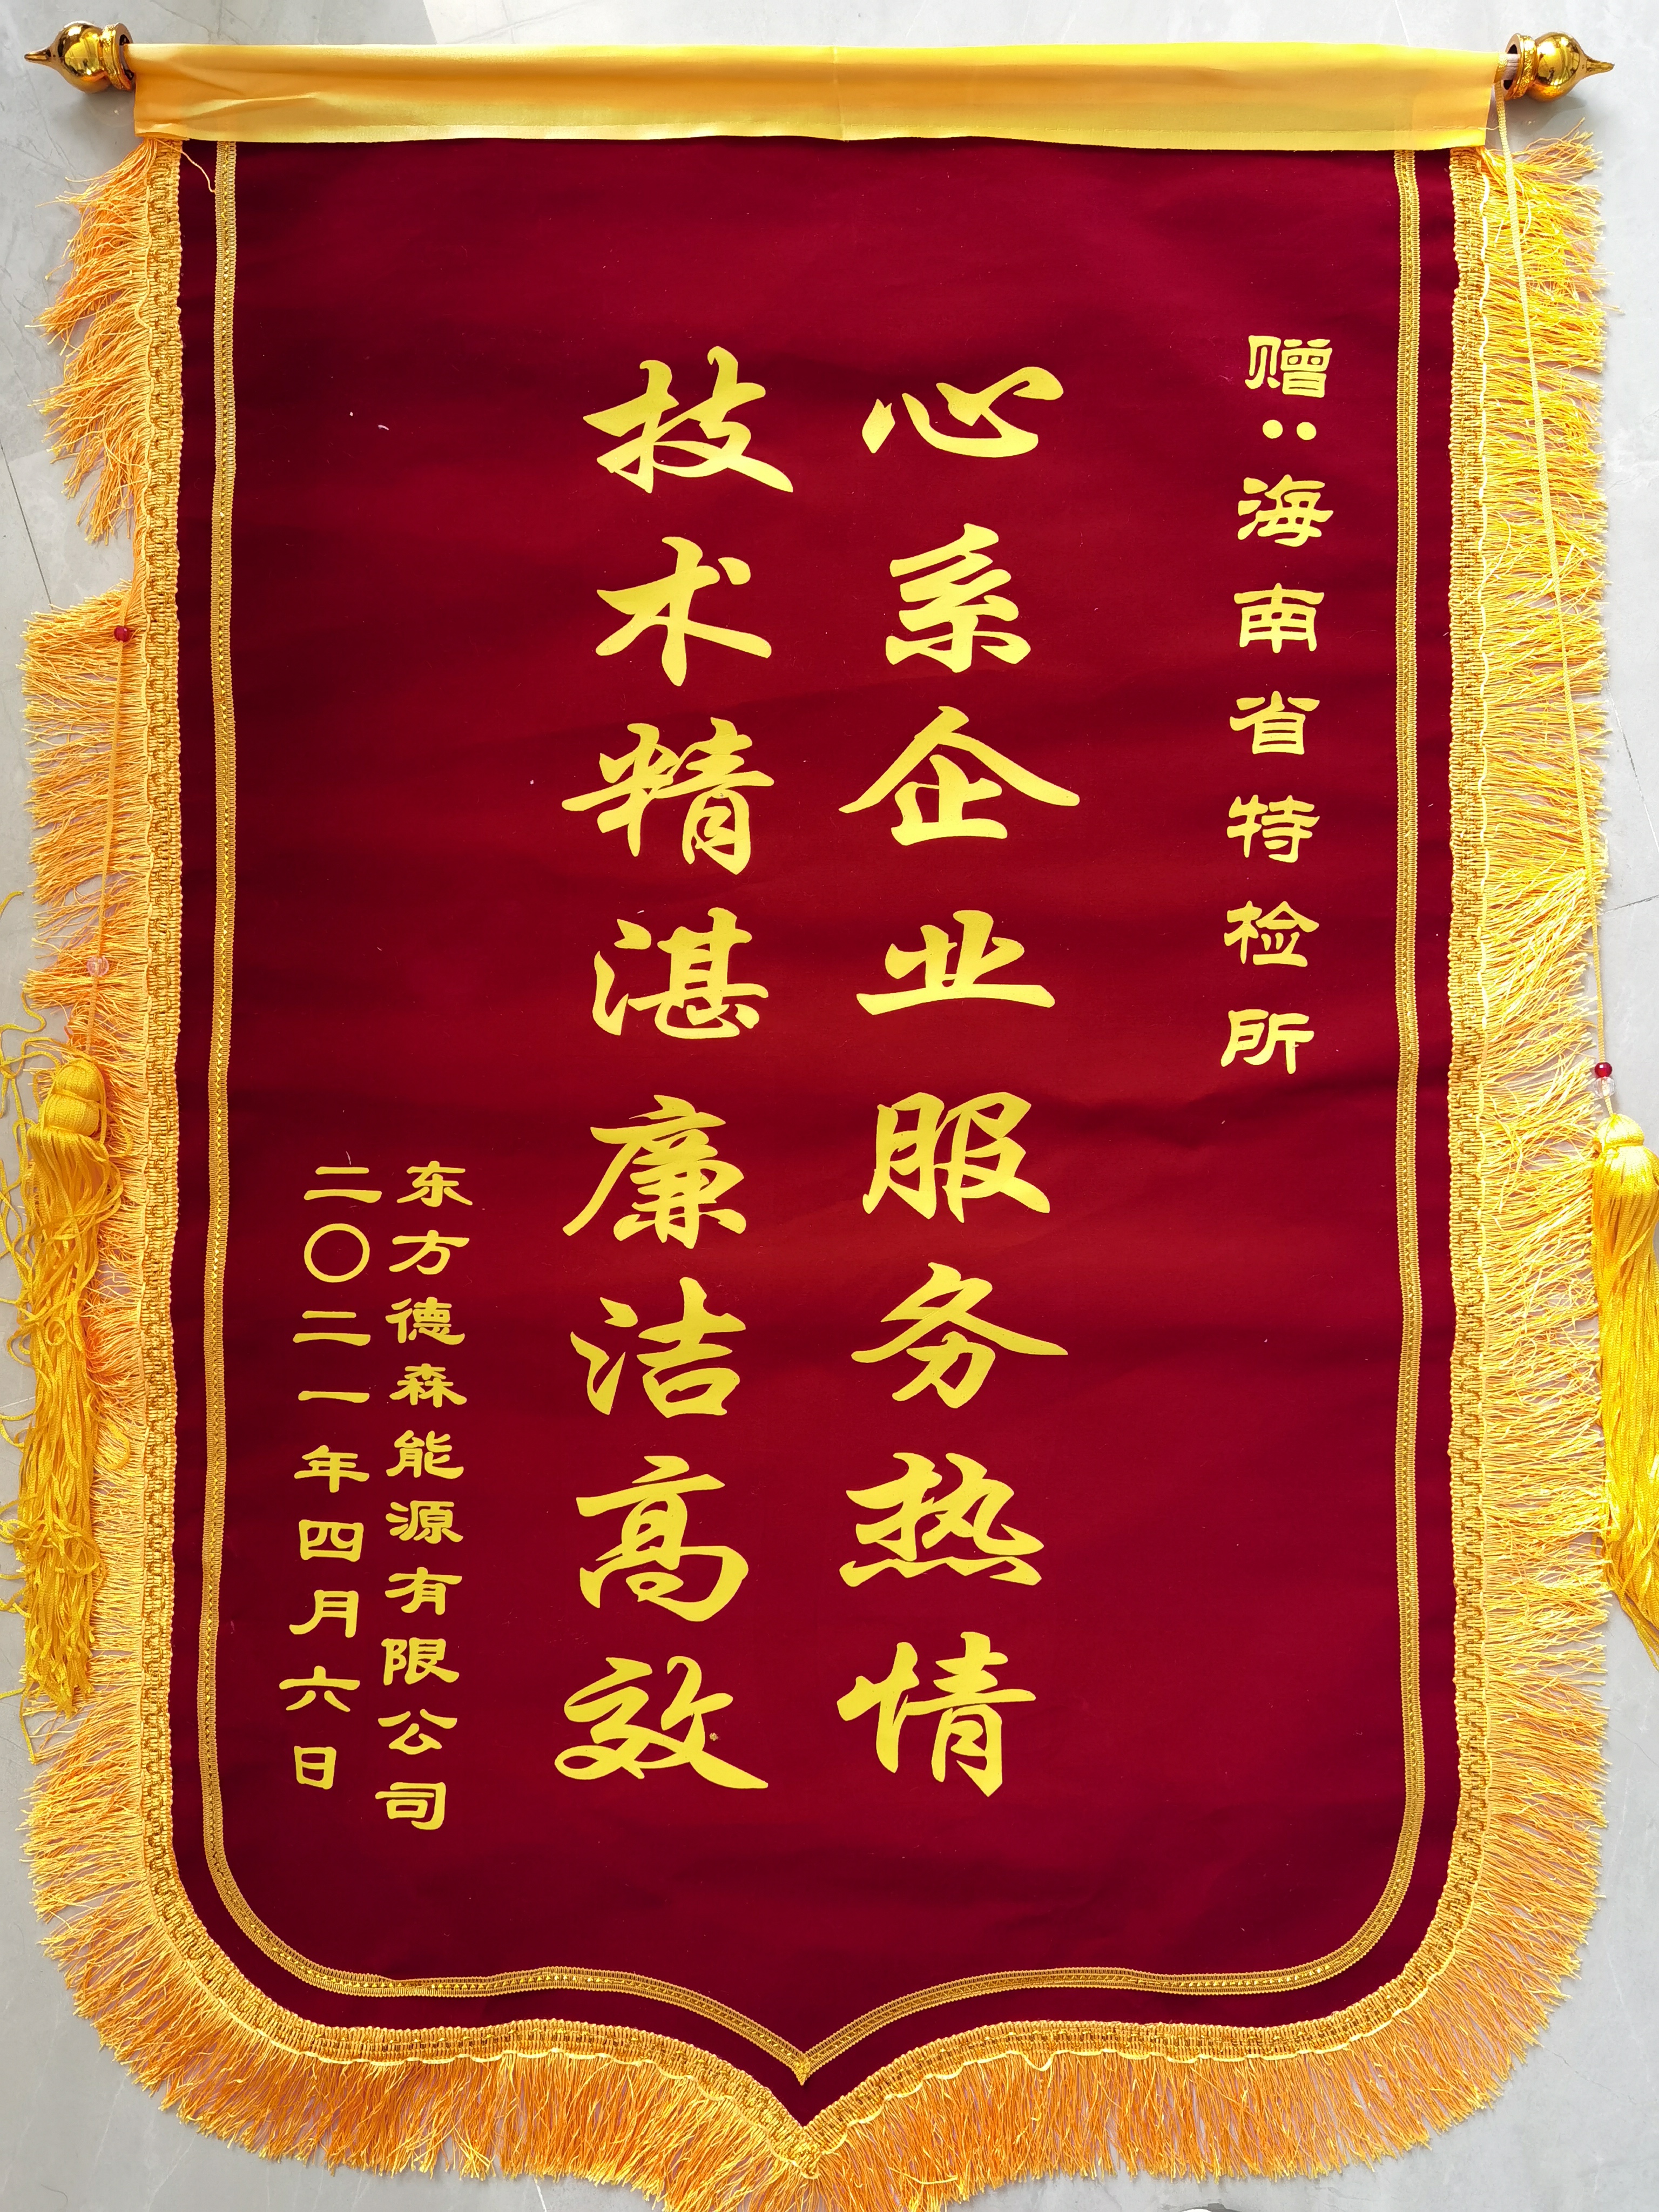 赠：海南省特检所
心系企业服务热情
技术精湛廉洁高效
东方德森能源有限公司
二〇二一年四月六日